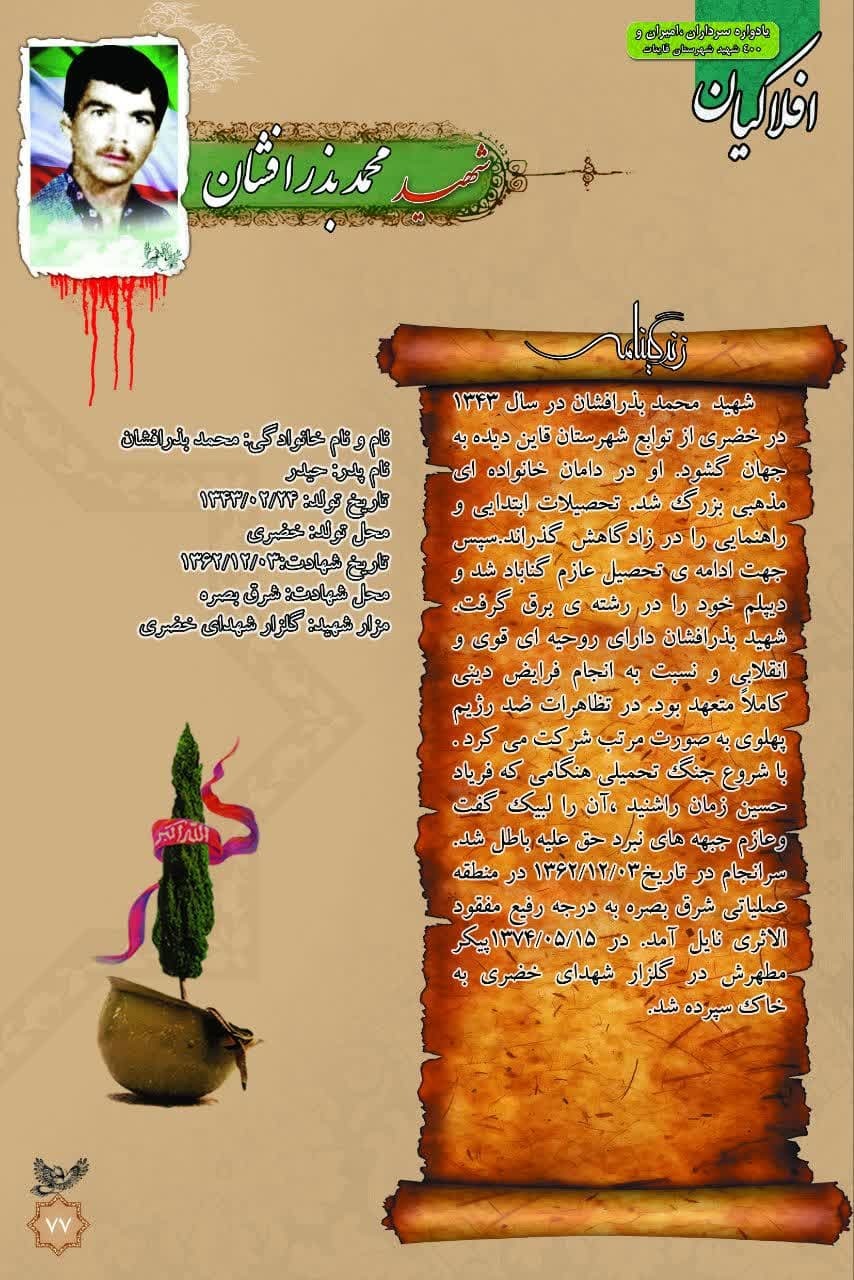 یادواره سرداران ،امیران و
۴۰۰ شهید شهرستان قاینات
افلاکیان
شهید محمد بذرافشان
زندگینامه
شهید محمد بذرافشان در سال ۱۳۴۳
در خضری از توابع شهرستان قاین دیده به
جهان گشود. او در دامان خانواده ای
مذهبی بزرگ شد. تحصیلات ابتدایی و
راهنمایی را در زادگاهش گذراند.سپس
جهت ادامه ی تحصیل عازم گناباد شد و
دیپلم خود را در رشته ی برق گرفت.
شهید بذرافشان دارای روحیه ای قوی و
انقلابی و نسبت به انجام فرایض دینی
کاملاً متعهد بود. در تظاهرات ضد رژیم
پهلوی به صورت مرتب شرکت می کرد .
با شروع جنگ تحمیلی هنگامی که فریاد
حسین زمان راشنید ،آن را لبیک گفت
وعازم جبهه های نبرد حق علیه باطل شد.
سرانجام در تاریخ۱۳۶۲/۱۲/۰۳ در منطقه
عملیاتی شرق بصره به درجه رفیع مفقود
الاثری نایل آمد. در ۱۳۷۴/۰۵/۱۵پیکر
مطهرش در گلزار شهدای خضری به
خاک سپرده شد.
نام و نام خانوادگی: محمد بذرافشان
نام پدر: حیدر
تاریخ تولد: ۱۳۴۳/۰۲/۲۴
محل تولد: خضری
تاریخ شهادت:۱۳۶۲/۱۲/۰۳
محل شهادت: شرق بصره
مزار شهید: گلزار شهدای خضری
الله اکبر
۷۷